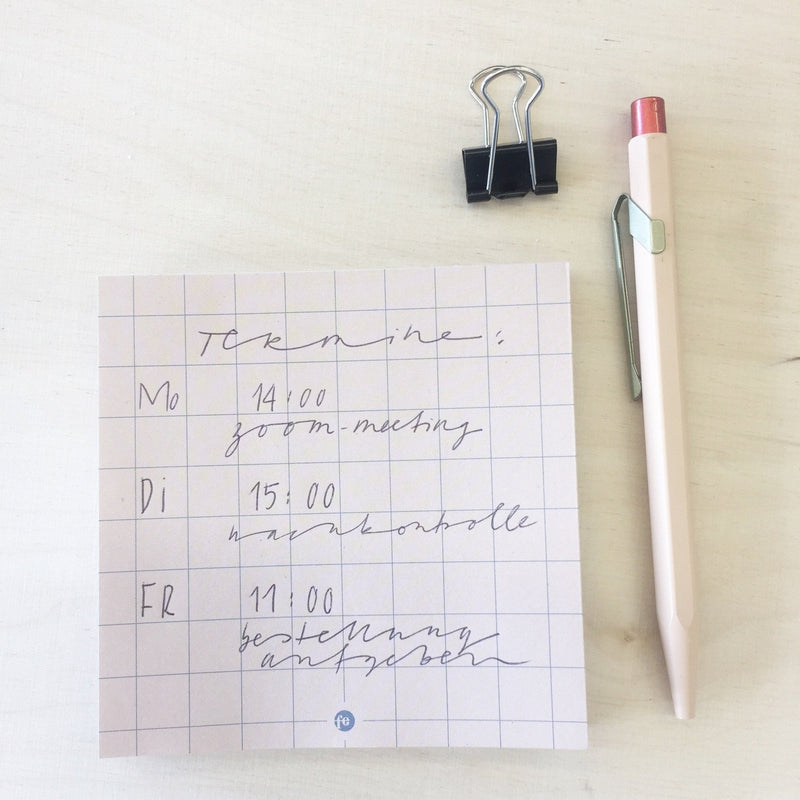 Termine:
Mo 14:00
zoom-meeting
Di 15:00
nachkontrolle
FR 11:00
bestellung
aufgeben
fe